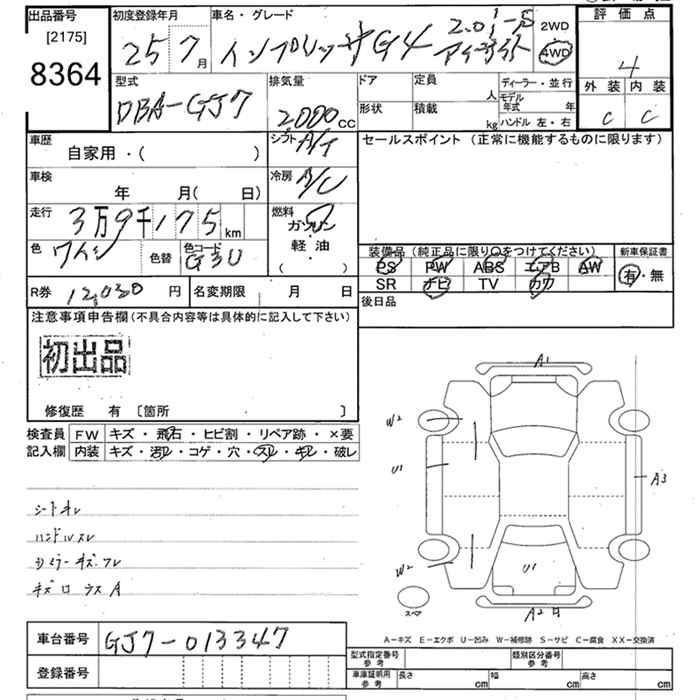 出品番号
[2175]
8364
初度登録年月
25 7月
車名・グレード
インプレッサG4 2.0i-S アイサイト
2WD
4WD
評価点
4
外装 内装
C C
型式
DBA-GJ7
排気量
2000 CC
ドア
定員
人
形状
積載
kg
ディーラー・並行
モデル年式 年
ハンドル 左・右
車歴
自家用・( )
シフト
A/T
セールスポイント (正常に機能するものに限ります)
車検
年 月( 日)
冷房
A/C
走行
3万9千175km
燃料
ガソリン
軽油
( )
色
ワイン
色替
色コード
G3U
装備品 (純正品に限り○をつけてください)
新車保証書
PS PW ABS エアB AW
有・無
SR ナビ TV カワ
R券 12,030 円
名変期限 月 日
後日品
注意事項申告欄(不具合内容等は具体的に記入して下さい)
初出品
修復歴 有 〔箇所 〕
検査員記入欄
FW キズ・飛石・ヒビ割・リペア跡・×要
内装 キズ・汚レ・コゲ・穴・スレ・キレ・破レ
シートキレ
ハンドルスレ
A1
W2
U1
A3
W2
U1
A2
スペア
A-キズ E-エクボ U-凹み W-補修跡 S-サビ C-腐食 XX-交換済
車台番号 GJ7-013347
登録番号
型式指定番号 参考
類別区分番号 参考
車庫証明用 参考
長さ cm
幅 cm
高さ cm